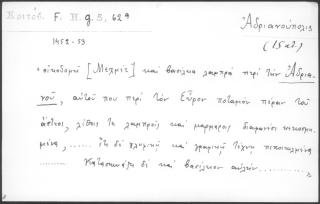 Κριτόβ. F. H. g. 5, 62a
Ἀδριανούπολις
(15 αἰ.)
1452-53
"οἰκοδομεῖ [Μεχμὲτ] καὶ βασίλεια λαμπρὰ περὶ τὴν Ἀδρια-
νοῦ, αὐτοῦ που περὶ τὸν Εὖρον ποταμὸν πέραν τοῦ
ἄστεος, λίθοις τε λαμπροῖς καὶ μαρμάροις διαφανέσι κεκοσμη-
μένα, ...... ἔτι δὲ γλυφικῇ καὶ γραφικῇ τέχνῃ πεποικιλμένα
............ Κατασκευάζει δὲ καὶ βασίλειον αὐλὴν ............